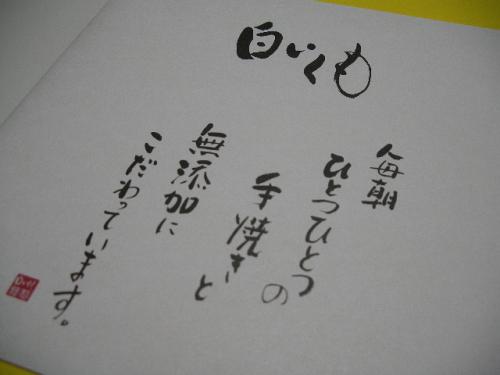 白いくも
毎朝
ひとつひとつ
の
手焼きと
無添加に
こだわっています。